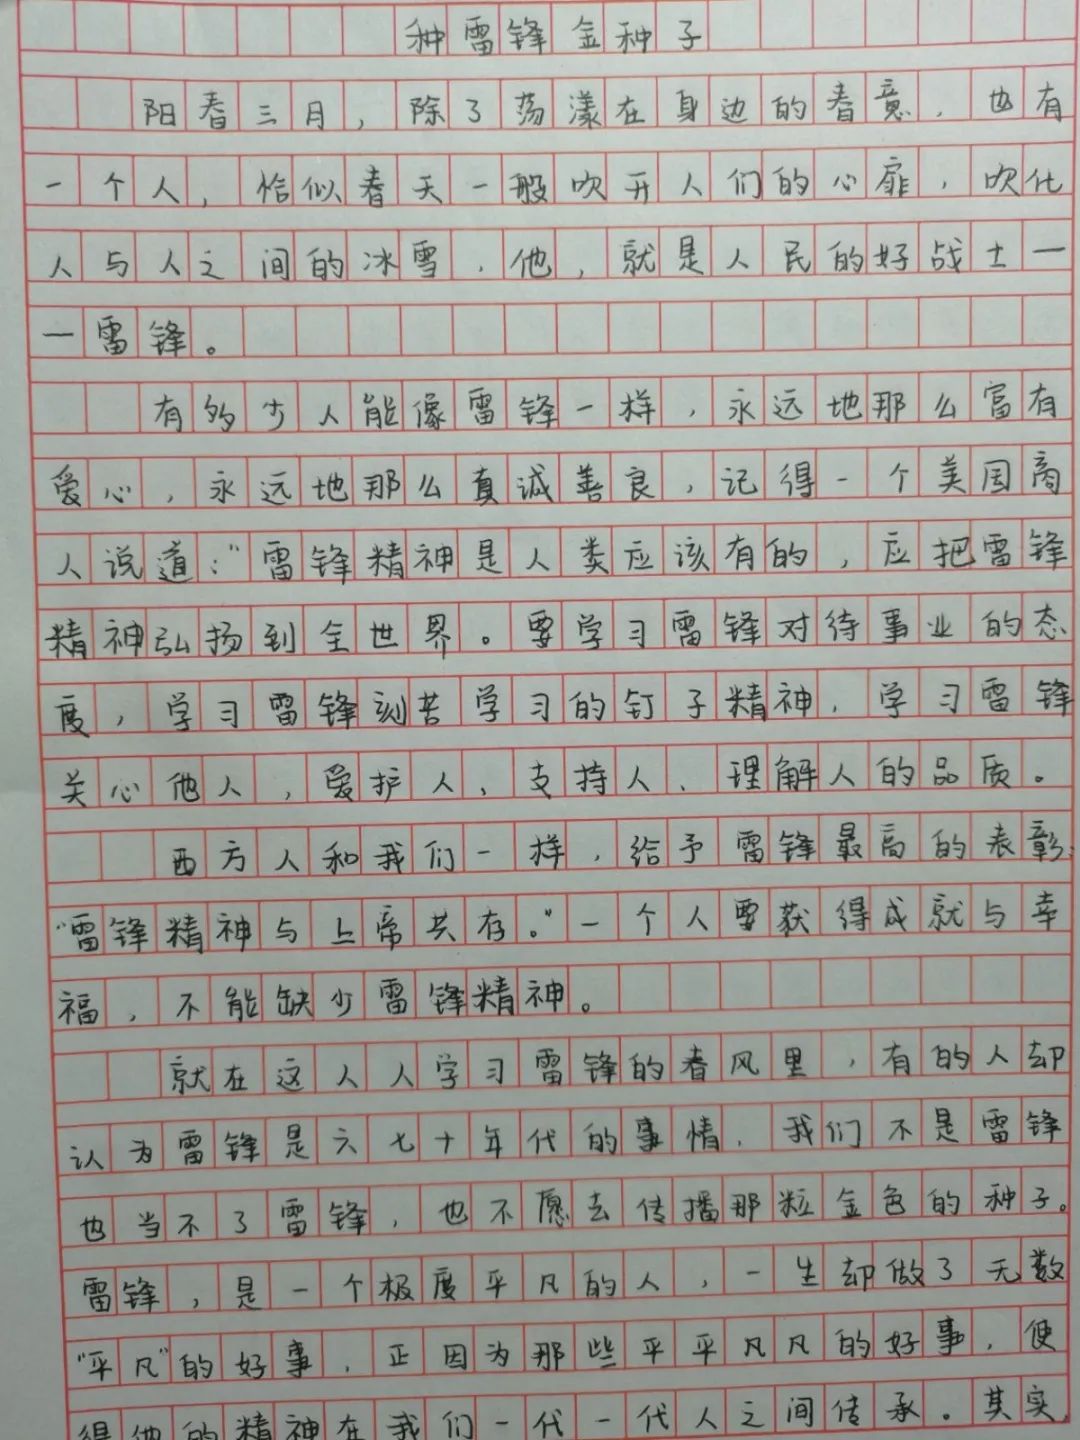 种雷锋金种子
阳春三月，除了荡漾在身边的春意，也有
一个人，恰似春天一般吹开人们的心扉，吹化
人与人之间的冰雪，他，就是人民的好战士一
一雷锋。
有多少人能像雷锋一样，永远地那么富有
爱心，永远地那么真诚善良，记得一个美国商
人说道："雷锋精神是人类应该有的，应把雷锋
精神弘扬到全世界。要学习雷锋对待事业的态
度，学习雷锋刻苦学习的钉子精神，学习雷锋
关心他人，爱护人，支持人、理解人的品质。
西方人和我们一样，给予雷锋最高的表彰：
"雷锋精神与上帝共存。"一个人要获得成就与幸
福，不能缺少雷锋精神。
就在这人人学习雷锋的春风里，有的人却
认为雷锋是六七十年代的事情，我们不是雷锋
也当不了雷锋，也不愿去传播那粒金色的种子。
雷锋，是一个极度平凡的人，一生却做了无数
"平凡"的好事，正因为那些平平凡凡的好事，使
得他的精神在我们一代一代人之间传承。其实